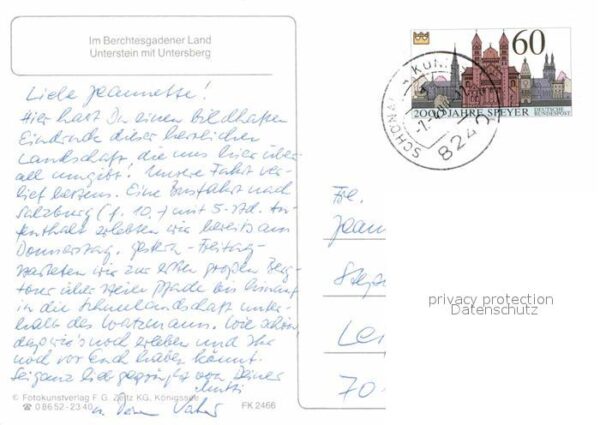 Im Berchtesgadener Land
Unterstein mit Untersberg
Liebe Jeannette!
Hier hast Du einen bildhaften
Eindruck dieser herrlichen
Landschaft, die uns hier über-
all umgibt. Unsere Fahrt ver-
lief bestens. Eine Busfahrt nach
Salzburg (1. 10.) mit 5-Std. Au-
fenthalt erlebten wir bereits am
Donnerstag. Gestern - Freitag -
starteten wir zur ersten großen Berg-
tour über steile Pfade bis hinauf
in die Schneelandschaft unter-
halb des Watzmann. Wie schön
daß wir's noch erleben und Ihr
noch vor Euch haben könnt.
Sei ganz lieb gegrüßt von Deiner
Mutti
u. Deinem Vater
© Fotokunstverlag F. G. Zeitz KG, Königssee
☎ 0 86 52 - 23 40
FK 2466
60
2000 JAHRE SPEYER
DEUTSCHE
BUNDESPOST
SCHÖNAU A. KÖN
8240
Frl.
Jean
Step
Lei
70
privacy protection
Datenschutz